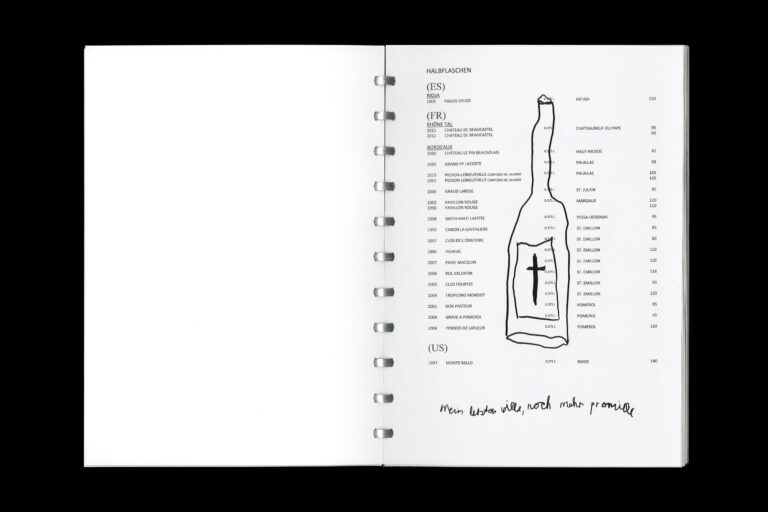 HALBFLASCHEN
(ES)
RIOJA
2005 PAGOS VIEJOS 0,375 L ARTADI 150
(FR)
RHÔNE TAL
2011 CHATEAU DE BEAUCASTEL 0,375 L CHATEAUNEUF DU PAPE 95
2012 CHATEAU DE BEAUCASTEL 90
BORDEAUX
2005 CHATEAU LE PIN BEAUSOLAIS 0,375 L HAUT-MEDOC 42
2004 GRAND PY LACOSTE 0,375 L PAUILLAC 98
2015 PICHON-LONGUEVILLE COMTESSE DE LALANDE 0,375 L PAUILLAC 165
2001 PICHON-LONGUEVILLE COMTESSE DE LALANDE 165
2006 GRAUD LAROSE 0,375 L ST. JULIEN 85
2003 PAVILLON ROUGE 0,375 L MARGAUX 120
1990 PAVILLON ROUGE 120
2008 SMITH-HAUT LAFITTE 0,375 L PESSA-LEOGNAN 95
1995 CANON LA GAFFALIERE 0,375 L ST. EMILLON 85
2007 CLOS DE L'ORATOIRE 0,375 L ST. EMILLON 80
1994 0,375 L ST. EMILLON 110
2007 PAVIL MACQUIN 0,375 L ST. EMILLON 120
2008 ROL VALENTIN 0,375 L ST. EMILLON 118
2000 CLOS FOURTET 0,375 L ST. EMILLON 90
2009 TROPLONG MONDOT 0,375 L ST. EMILLON 120
2001 BON PASTEUR 0,375 L POMEROL 95
2004 GRAVE A POMEROL 0,375 L POMEROL 45
2006 PENSEES DE LAFLEUR 0,375 L POMEROL 160
(US)
1997 MONTE BELLO 0,375 L RIDGE 140
Mein letzter wille, noch mehr promille